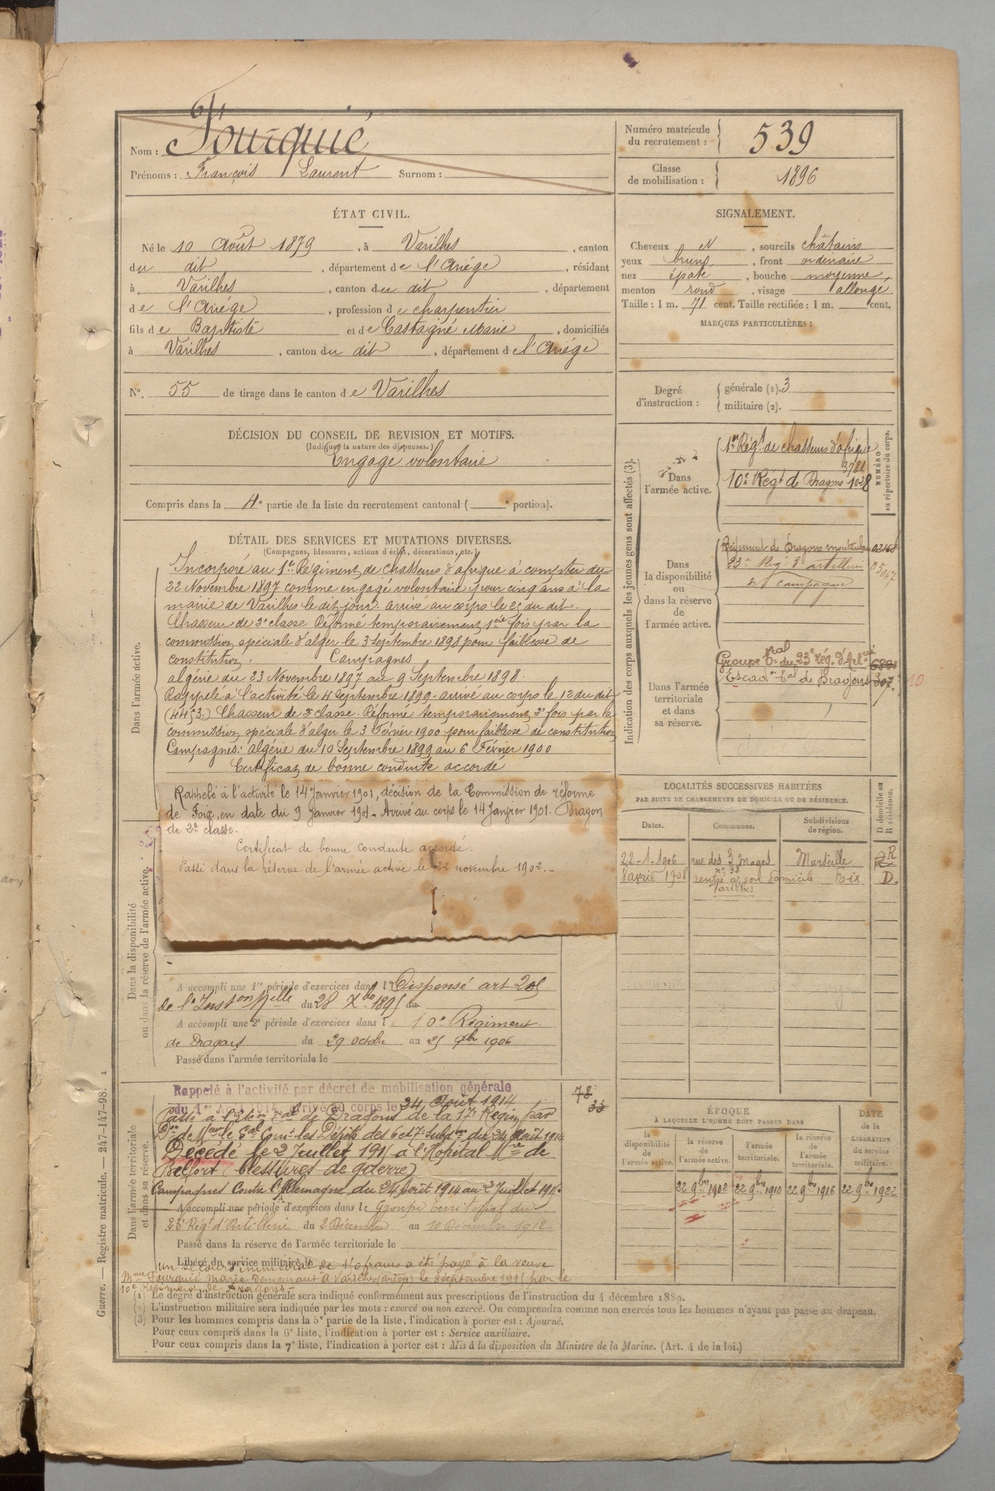 Nom : Fourquié
Prénoms : François Laurent Surnom :
Numéro matricule du recrutement : 539
Classe de mobilisation : 1896
ÉTAT CIVIL.
Né le 10 Août 1879, à Varilhes, canton
du dit, département de l'Ariège, résidant
à Varilhes, canton du dit, département
de l'Ariège, profession de charpentier
fils de Baptiste et de Castagné Marie, domiciliés
à Varilhes, canton du dit, département de l'Ariège
N°. 55 de tirage dans le canton de Varilhes
SIGNALEMENT.
Cheveux et, sourcils châtains
yeux bruns, front ordinaire
nez épaté, bouche moyenne,
menton rond, visage allongé
Taille : 1 m. 71 cent. Taille rectifiée : 1 m. cent.
MARQUES PARTICULIÈRES :
Degré d'instruction : générale (1). 3
militaire (2).
DÉCISION DU CONSEIL DE REVISION ET MOTIFS.
(Indiquer la nature des dispenses.)
Engagé volontaire
Compris dans la 4e partie de la liste du recrutement cantonal ( portion).
DÉTAIL DES SERVICES ET MUTATIONS DIVERSES.
(Campagnes, blessures, actions d'éclat, décorations, etc.)
Dans l'armée active.
Incorporé au 1er Régiment de chasseurs d'afrique à compter du
22 Novembre 1897 comme engagé volontaire pour cinq ans à la
mairie de Varilhes le dit jour. arrivé au corps le 25 du dit.
Chasseur de 2e classe. Réformé temporairement 1ère fois par la
commission spéciale d'alger le 3 septembre 1898 pour faiblesse de
constitution. Campagnes
algérie du 23 Novembre 1897 au 9 Septembre 1898.
Rappelé à l'activité le 4 Septembre 1899. arrivé au corps le 12 du dit
(4453) Chasseur de 2e classe. Réformé temporairement 2e fois par la
commission spéciale d'alger le 3 Février 1900 pour faiblesse de constitution
Campagnes: algérie du 10 Septembre 1899 au 6 Février 1900
Certificat de bonne conduite accordé
Rappelé à l'activité le 14 Janvier 1901, décision de la Commission de réforme
de Foix, en date du 9 Janvier 1901. Arrivé au corps le 14 Janvier 1901. Dragon
de 2e classe.
Certificat de bonne conduite accordé.
Passé dans la réserve de l'armée active le 22 novembre 1902.
Dans la disponibilité ou dans la réserve de l'armée active.
A accompli une 1re période d'exercices dans l Dispensé art 205
de l'Inston Mlle du 28 Xbre 1895 au
A accompli une 2e période d'exercices dans le 10e Régiment
de Dragons du 29 octobre au 25 9bre 1906
Passé dans l'armée territoriale le
Dans l'armée territoriale et dans sa réserve.
Rappelé à l'activité par décret de mobilisation générale
du 1er Août 1914 arrivé au corps le 24 Août 1914
Passé à l'Escon Tal de Dragons de la 17e Région par
Don de Mr le Gal Comt les Dépôts des 6 et 7 Subdons du 24 Août 1914
Décédé le 2 Juillet 1915 à l'Hôpital Mre de
Belfort (blessures de guerre)
Campagnes Contre l'Allemagne du 24 août 1914 au 2 Juillet 1915.
A accompli une période d'exercices dans le Groupe territorial du
23e Régt d'Artillerie du 2 Décembre au 10 Décembre 1912.
Passé dans la réserve de l'armée territoriale le
Libéré du service militaire le
un secours immédiat de 150 francs a été payé à la veuve
Mme Fourquié Marie demeurant à Varilhes (Ariège) le septembre 1915 par le
10e Régiment de Dragons.
Indication des corps auxquels les jeunes gens sont affectés (3).
NUMÉRO au répertoire du corps.
Dans l'armée active.
1er Régt de chasseurs d'afrique 3781
10e Régt de Dragons 1028
Dans la disponibilité ou dans la réserve de l'armée active.
Régiment de Dragons montauban 02168
23e Régt d'artillerie 0547
de campagne
Dans l'armée territoriale et dans sa réserve.
Groupe Tal du 23e Rég. d'Artie 6891
Escadon Tal de Dragons 307
LOCALITÉS SUCCESSIVES HABITÉES
PAR SUITE DE CHANGEMENTS DE DOMICILE OU DE RÉSIDENCE.
Dates. Communes. Subdivisions de région. D domicile ou R résidence.
22-1-1906 rue des 3 Mages n° 38 Marseille R
8 avril 1908 rentré à son domicile Varilhes Foix D
ÉPOQUE
À LAQUELLE L'HOMME DOIT PASSER DANS
DATE DE LA LIBÉRATION du service militaire.
la disponibilité de l'armée active. la réserve de l'armée active. l'armée territoriale. la réserve de l'armée territoriale.
22 9bre 1902 22 9bre 1910 22 9bre 1916 22 9bre 1922
(1) Le degré d'instruction générale sera indiqué conformément aux prescriptions de l'instruction du 4 décembre 1889.
(2) L'instruction militaire sera indiquée par les mots : exercé ou non exercé. On comprendra comme non exercés tous les hommes n'ayant pas passé au drapeau.
(3) Pour les hommes compris dans la 5e partie de la liste, l'indication à porter est : Ajourné.
Pour ceux compris dans la 6e liste, l'indication à porter est : Service auxiliaire.
Pour ceux compris dans la 7e liste, l'indication à porter est : Mis à la disposition du Ministre de la Marine. (Art. 4 de la loi.)
Guerre. — Registre matricule. — 247-147-98.